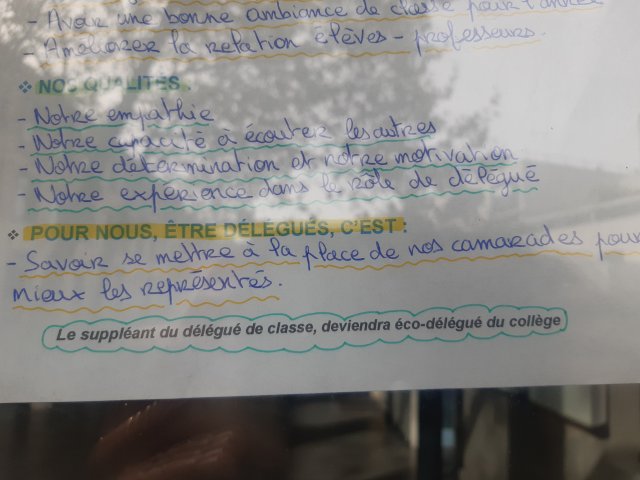 - Avoir une bonne ambiance de classe pour l'année
- Améliorer la relation élèves - professeurs.
❖ NOS QUALITÉS :
- Notre empathie
- Notre capacité à écouter les autres
- Notre détermination et notre motivation
- Notre expérience dans le rôle de délégué
❖ POUR NOUS, ÊTRE DÉLÉGUÉS, C'EST :
- Savoir se mettre à la place de nos camarades pour
mieux les représentés.
Le suppléant du délégué de classe, deviendra éco-délégué du collège